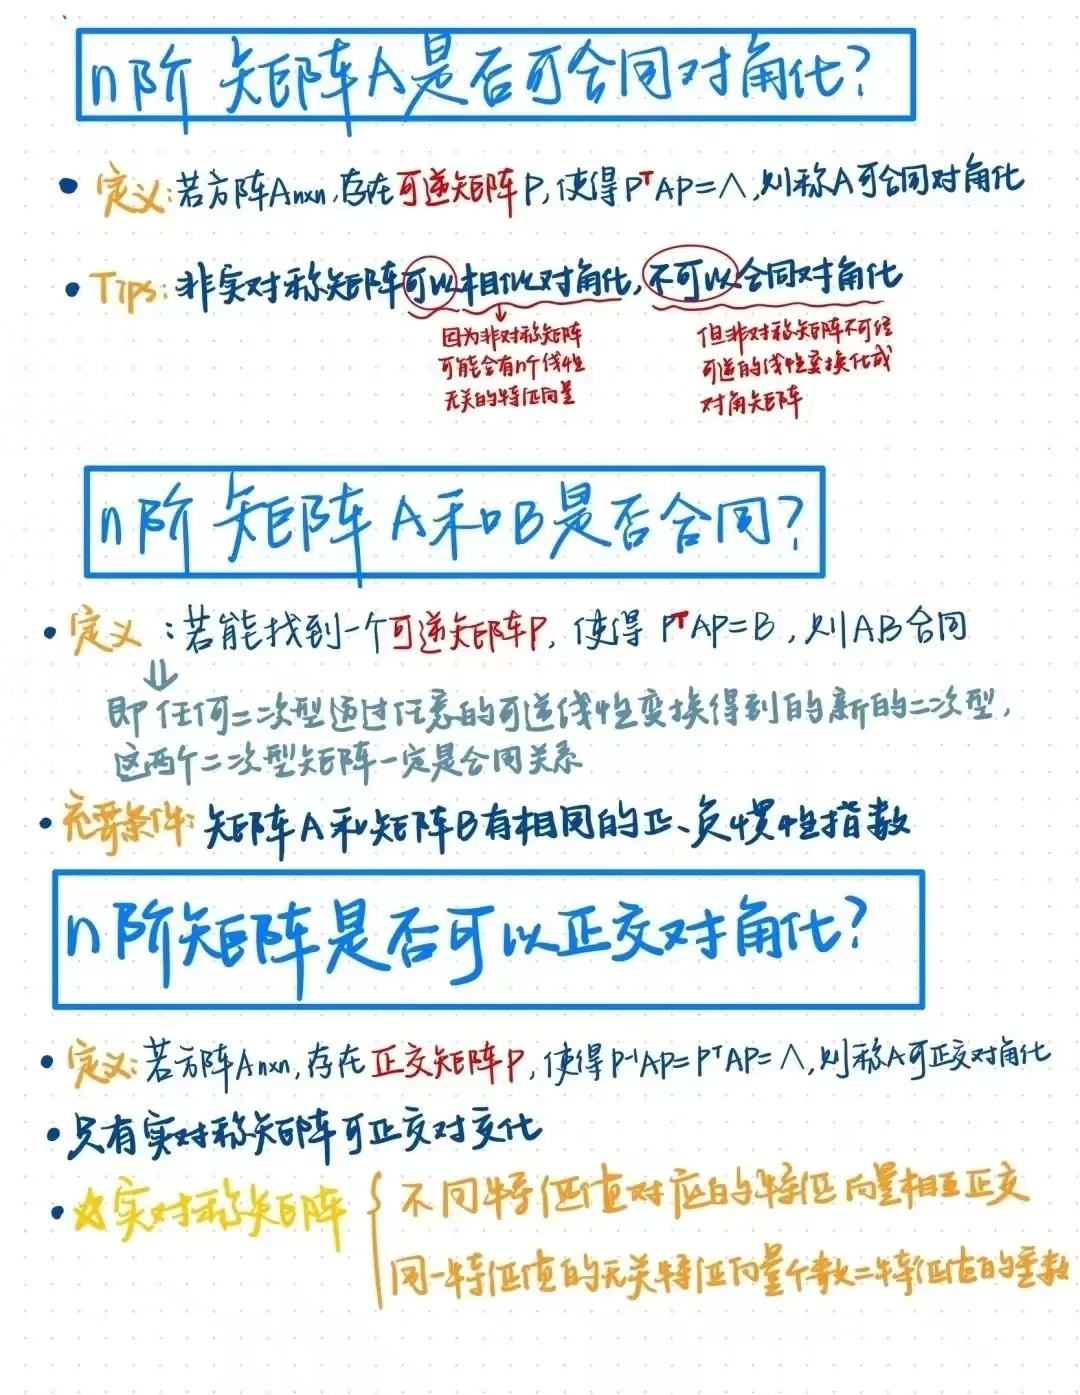 n阶矩阵A是否可合同对角化?
• 定义:若方阵Anxn,存在可逆矩阵P,使得PᵀAP=Λ,则称A可合同对角化
• Tips:非实对称矩阵可以相似对角化,不可以合同对角化
因为非对称矩阵
可能会有n个线性
无关的特征向量
但非对称矩阵不可经
可逆的线性变换化成
对角矩阵
n阶矩阵A和B是否合同?
• 定义:若能找到一个可逆矩阵P,使得PᵀAP=B,则AB合同
⇓
即任何二次型通过任意的可逆线性变换得到的新的二次型,
这两个二次型矩阵一定是合同关系
• 充要条件:矩阵A和矩阵B有相同的正、负惯性指数
n阶矩阵是否可以正交对角化?
• 定义:若方阵Anxn,存在正交矩阵P,使得P⁻¹AP=PᵀAP=Λ,则称A可正交对角化
• 只有实对称矩阵可正交对变化
• ☆实对称矩阵 { 不同特征值对应的特征向量相互正交
同一特征值的无关特征向量个数=特征值的重数